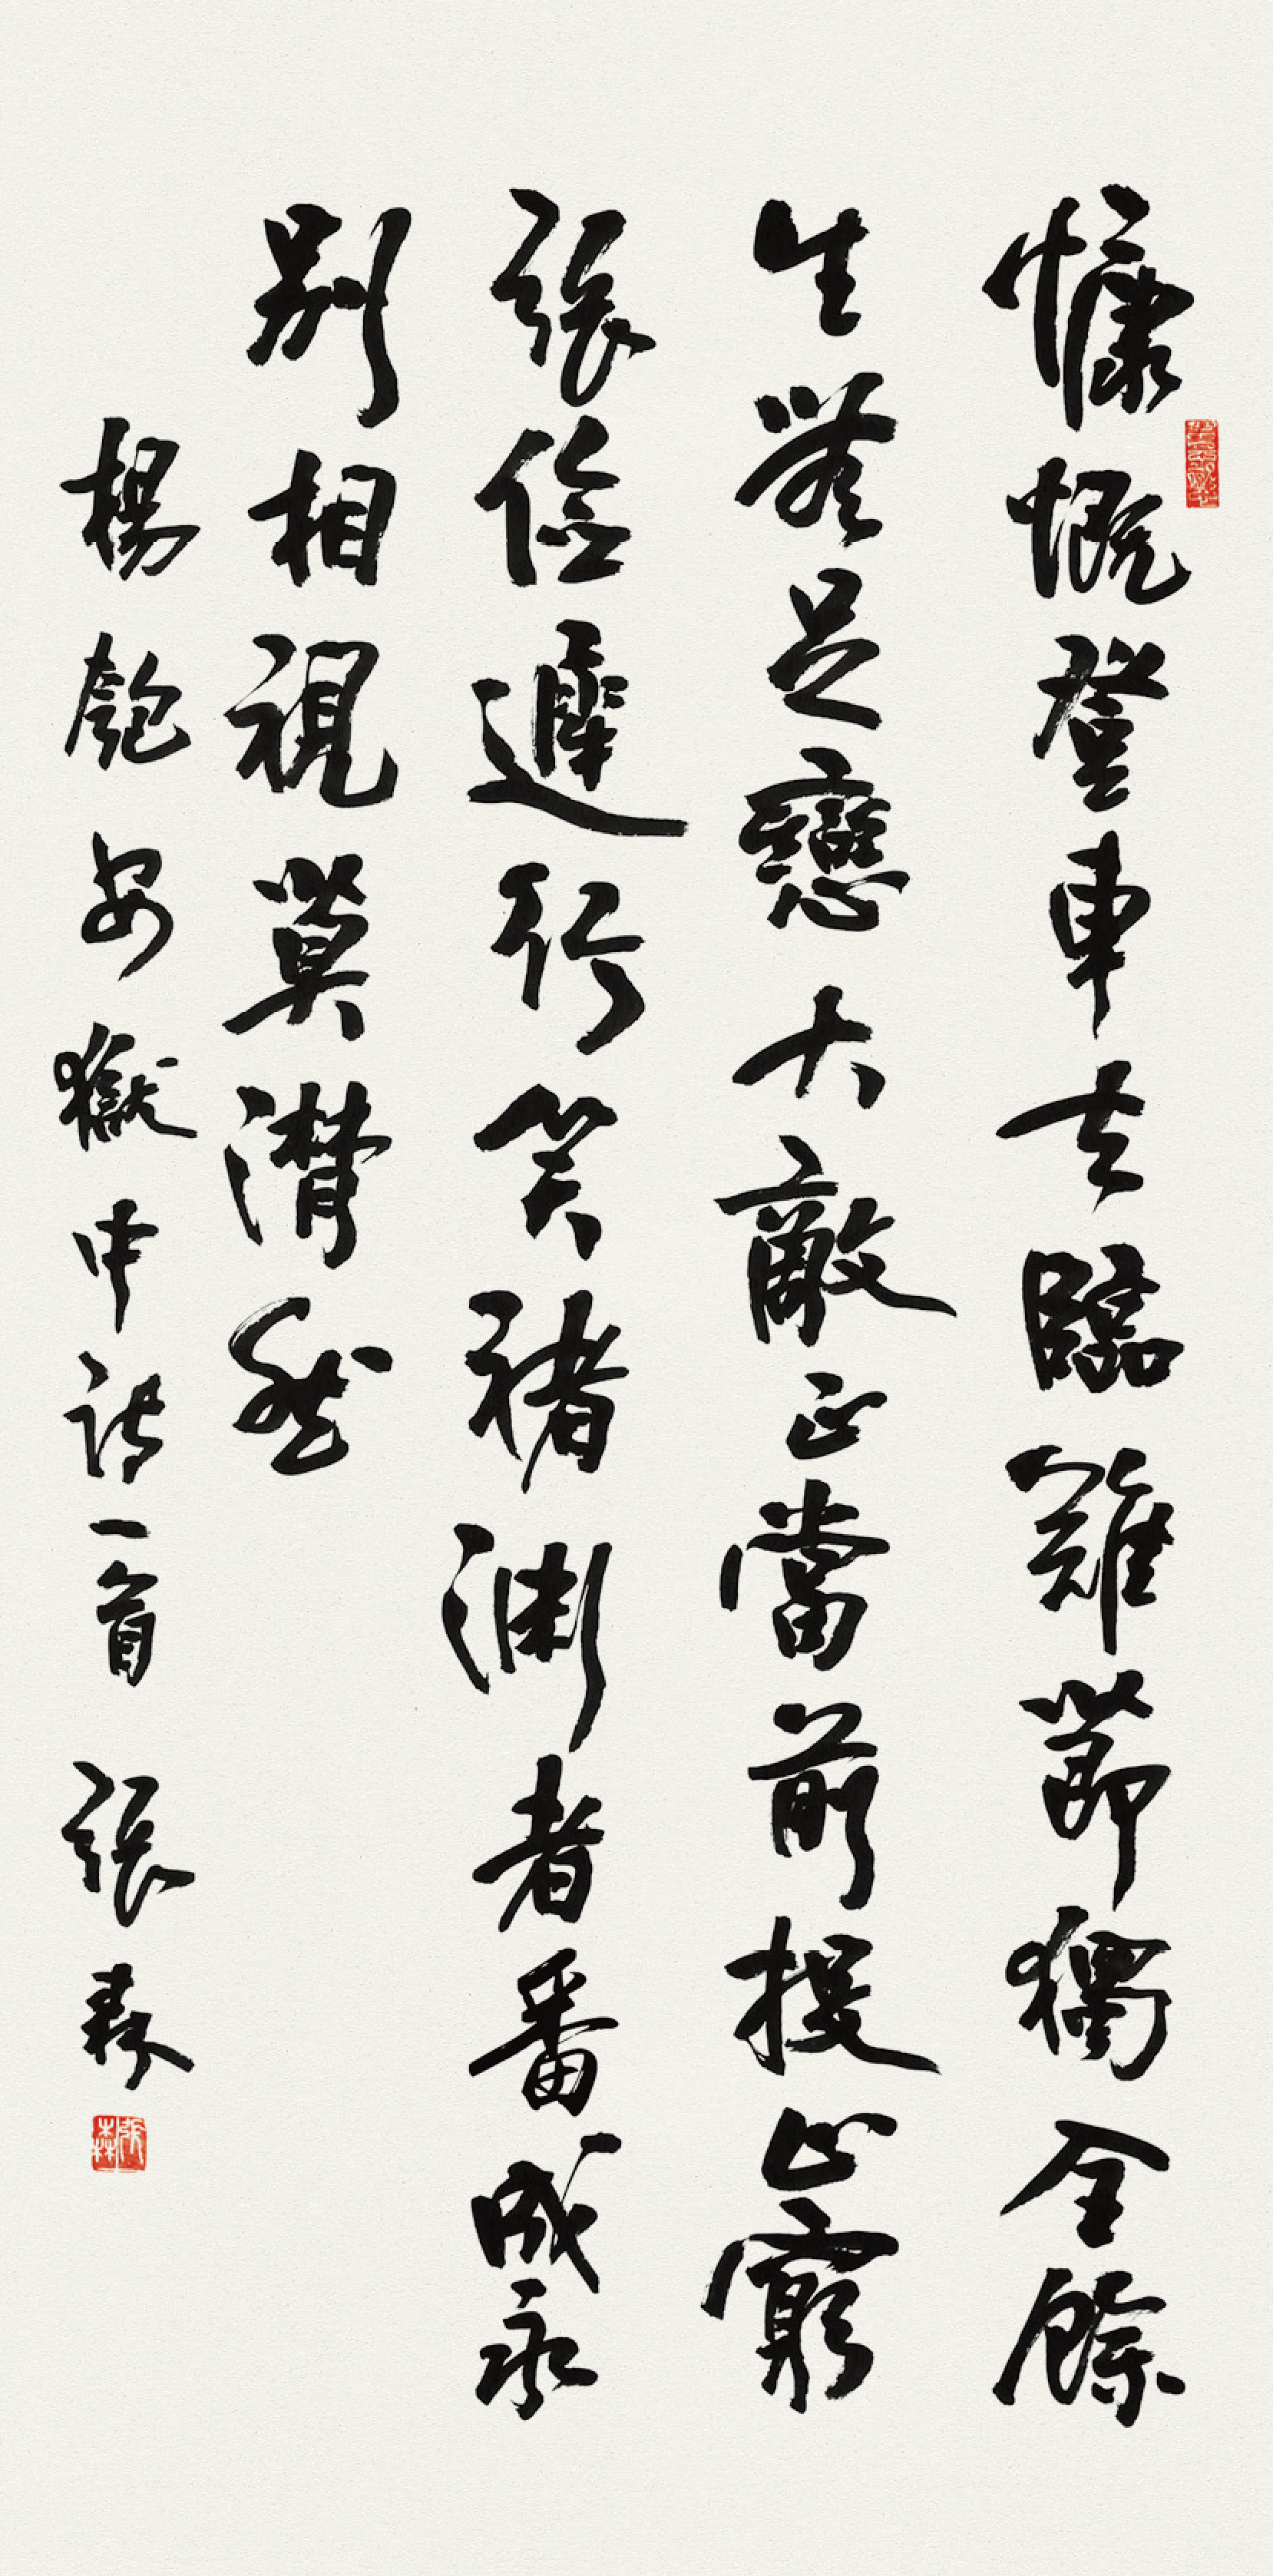 慷慨登車去臨難節獨全餘
生無足戀大敵正當前投止窮
張儉遲行笑褚淵者番成永
別相視莫潸然
楊匏安獄中詩一首 張森
張森